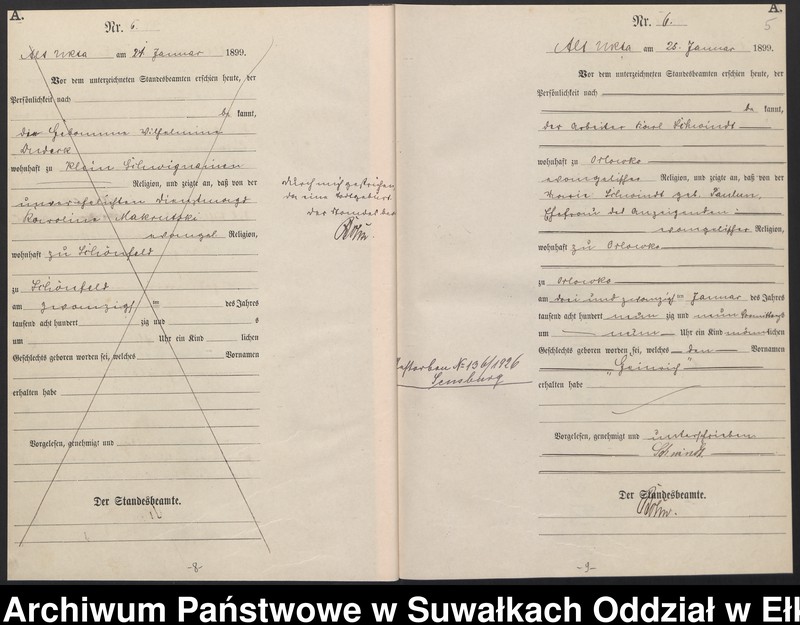 A.
Nr. 6.
Alt Ukta am 24. Januar 1899.
Vor dem unterzeichneten Standesbeamten erschien heute, der
Persönlichkeit nach
be kannt,
die Hebamme Wilhelmine
wohnhaft zu Klein
Religion, und zeigte an, daß von der
unverehelichten Dienstmagd
Karoline
evangel Religion,
wohnhaft zu Schönfeld
zu Schönfeld
am zwanzigsten des Jahres
tausend acht hundert zig und s
um Uhr ein Kind lichen
Geschlechts geboren worden sei, welches Vornamen
erhalten habe
Vorgelesen, genehmigt und
Der Standesbeamte.
-8-
durch mich gestrichen,
da eine Totgeburt.
Der Standesbeamte
Böhm.
A.
5
Nr. 6.
Alt Ukta am 26. Januar 1899.
Vor dem unterzeichneten Standesbeamten erschien heute, der
Persönlichkeit nach
be kannt,
der Arbeiter Karl Schwindt
wohnhaft zu Orlowko
evangelischer Religion, und zeigte an, daß von der
Marie Schwindt geb.
Ehefrau des Anzeigenden
evangelischer Religion,
wohnhaft zu Orlowko
zu Orlowko
am drei und zwanzigsten Januar des Jahres
tausend acht hundert neun zig und neun Vormittags
um neun Uhr ein Kind männlichen
Geschlechts geboren worden sei, welches den Vornamen
„Heinrich“
erhalten habe
Vorgelesen, genehmigt und unterschrieben
Schwindt.
Der Standesbeamte.
Böhm.
-9-
Gestorben № 136/1926
Sensburg
Archiwum Państwowe w Suwałkach Oddział w Ełk